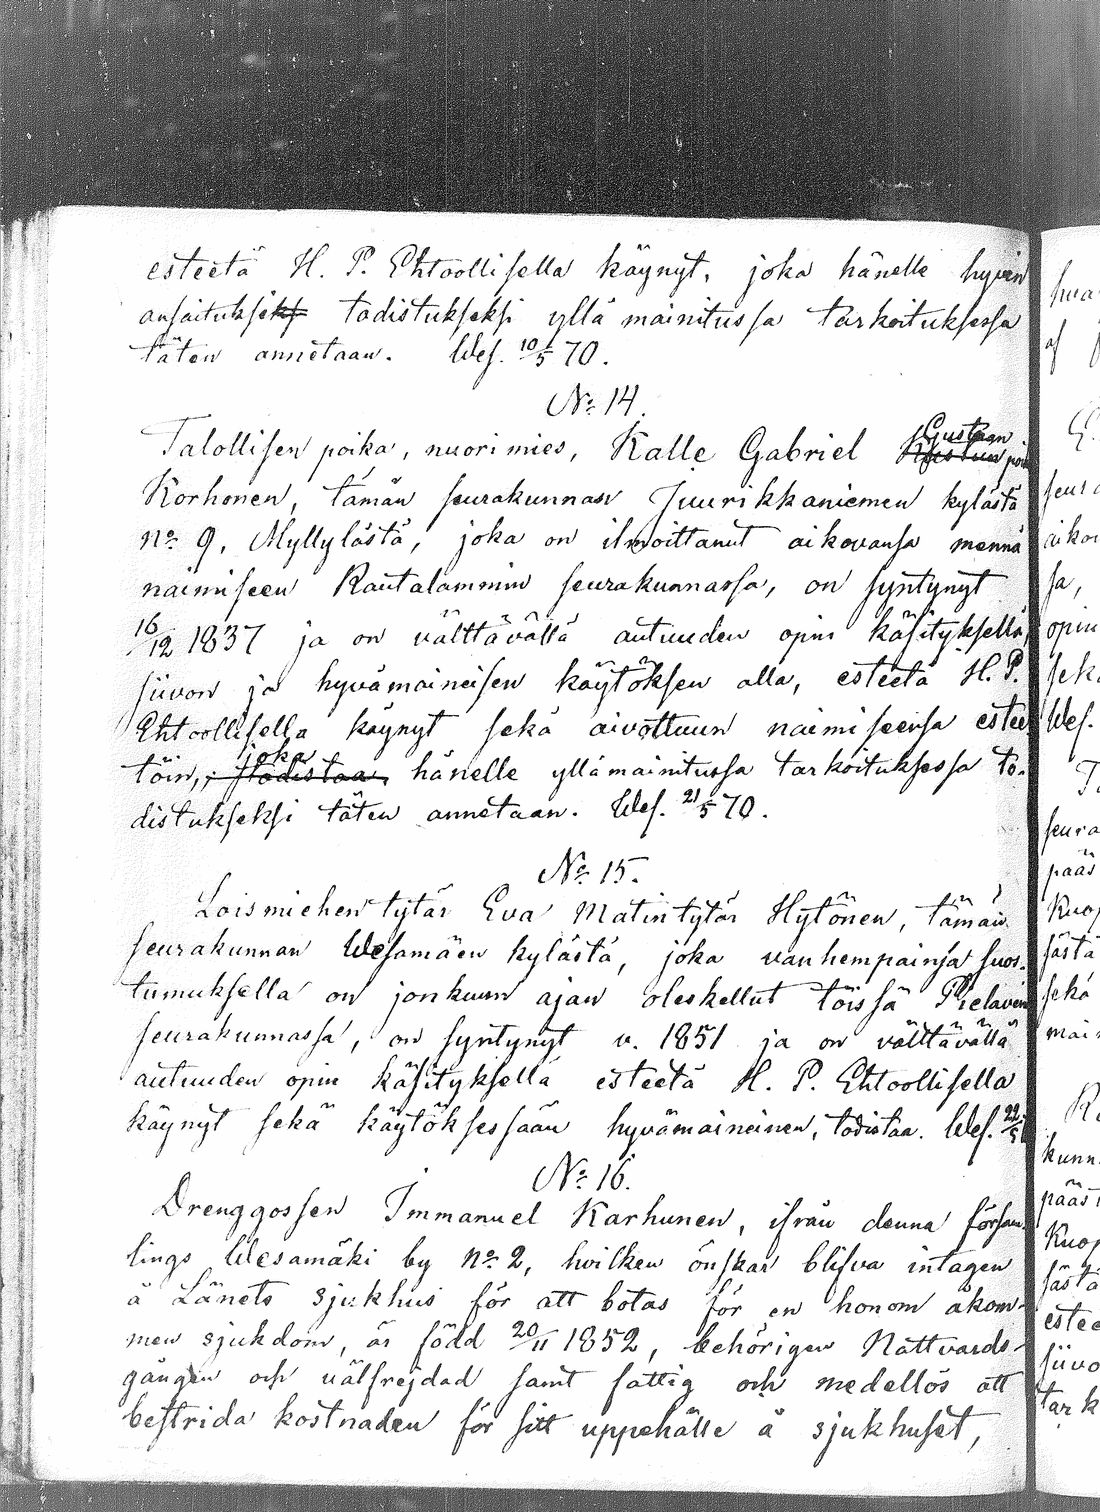 esteetä H. P. Ehtoollisella käynyt, joka hänelle hyvin
ansaitukseksi todistukseksi yllä mainitussa tarkoituksessa
täten annetaan. Wes. 10/5 70.
No 14.
Talollisen poika, nuorimies, Kalle Gabriel Gustaan poika
Korhonen, tämän seurakunnan Juurikkaniemen kylästä
no 9, Myllylästä, joka on ilmoittanut aikovansa mennä
naimiseen Rautalammin seurakunnassa, on syntynyt
16/12 1837 ja on välttävällä autuuden opin käsityksellä,
siivon ja hyvämaineisen käytöksen alla, esteetä H. P.
Ehtoollisella käynyt sekä aivottuun naimiseensa estee
töin, joka todistaa, hänelle yllämainitussa tarkoituksessa to-
distukseksi täten annetaan. Wes. 21/5 70.
No 15.
Loismiehen tytär Eva Matintytär Hytönen, tämän
seurakunnan Wesamäen kylästä, joka vanhempainsa suos-
tumuksella on jonkuun ajan oleskellut töissä Pielaven
seurakunnassa, on syntynyt v. 1851 ja on välttävällä
autuuden opin käsityksellä esteetä H. P. Ehtoollisella
käynyt sekä käytöksessään hyvämaineinen, todistaa. Wes. 22/5
No 16.
Drenggossen Immanuel Karhunen, ifrån denna försam-
lings Wesamäki by no 2, hvilken önskar blifva intagen
å Länets sjukhus för att botas för en honom åkom-
men sjukdom, är född 20/11 1852, behörigen Nattvards-
gången och välfrejdad samt fattig och medellös att
bestrida kostnaden för sitt uppehälle å sjukhuset,